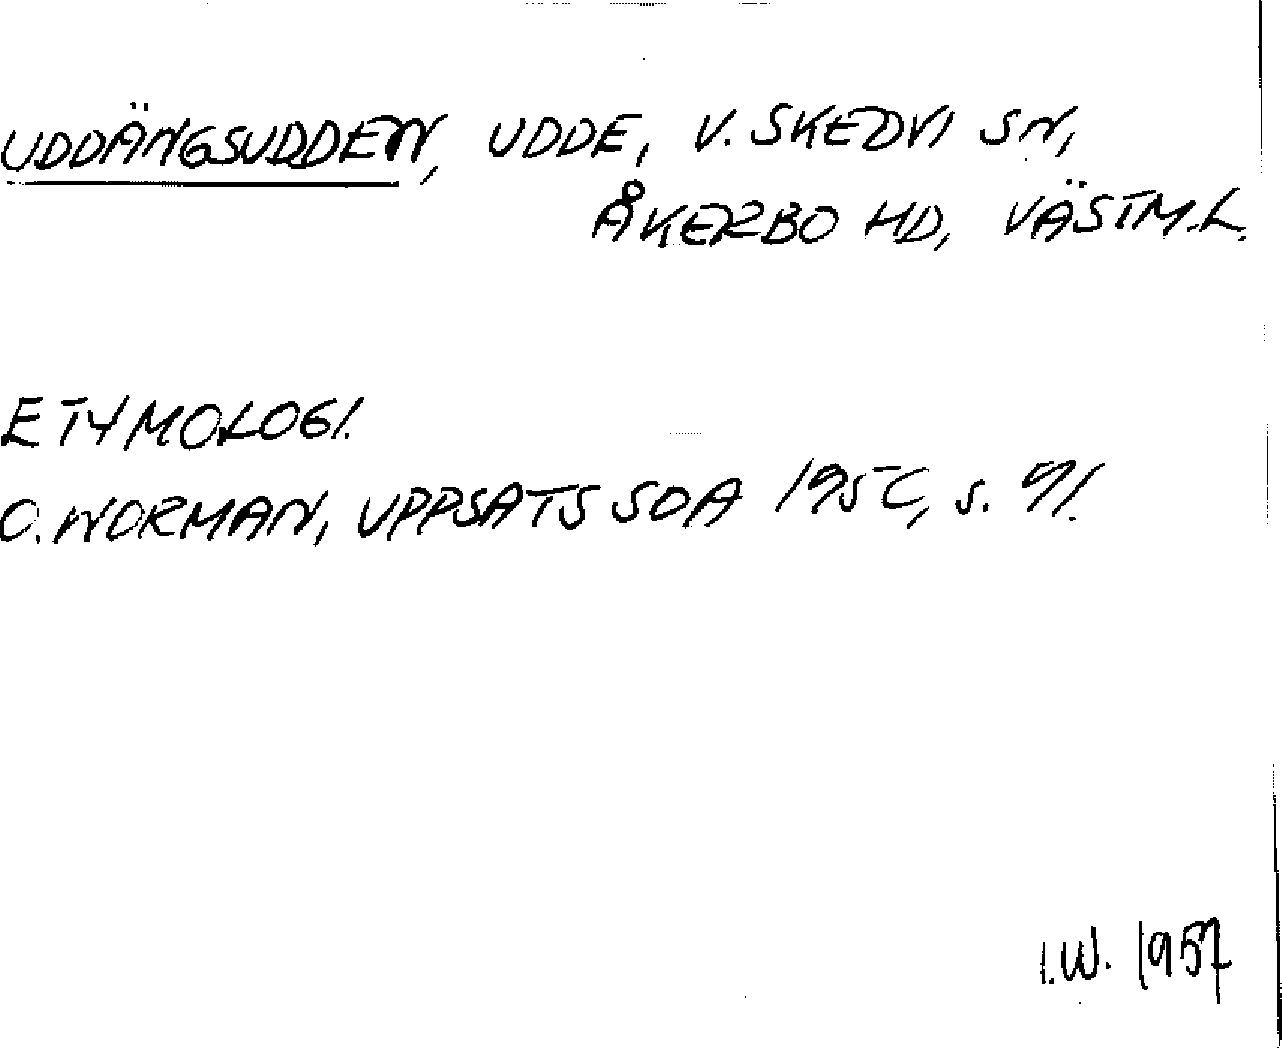 UDDÄNGSUDDEN, UDDE, V. SKEDVI SN,
ÅKERBO HD, VÄSTM.L.
ETYMOLOGI.
O. NORMAN, UPPSATS SOA s. 91.
I.W. 1957